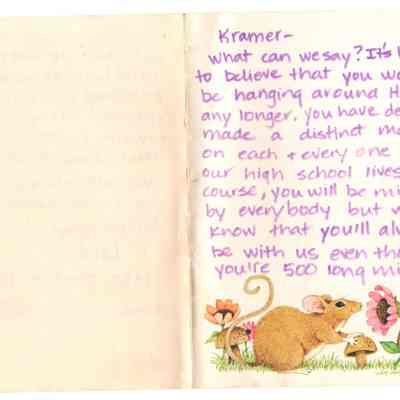 Kramer-
what can we say? It's
to believe that you
be hanging around
any longer. you have
made a distinct
on each & every one
our high school lives
course, you will be
by everybody but
know that you'll
be with us even
you're 500 long